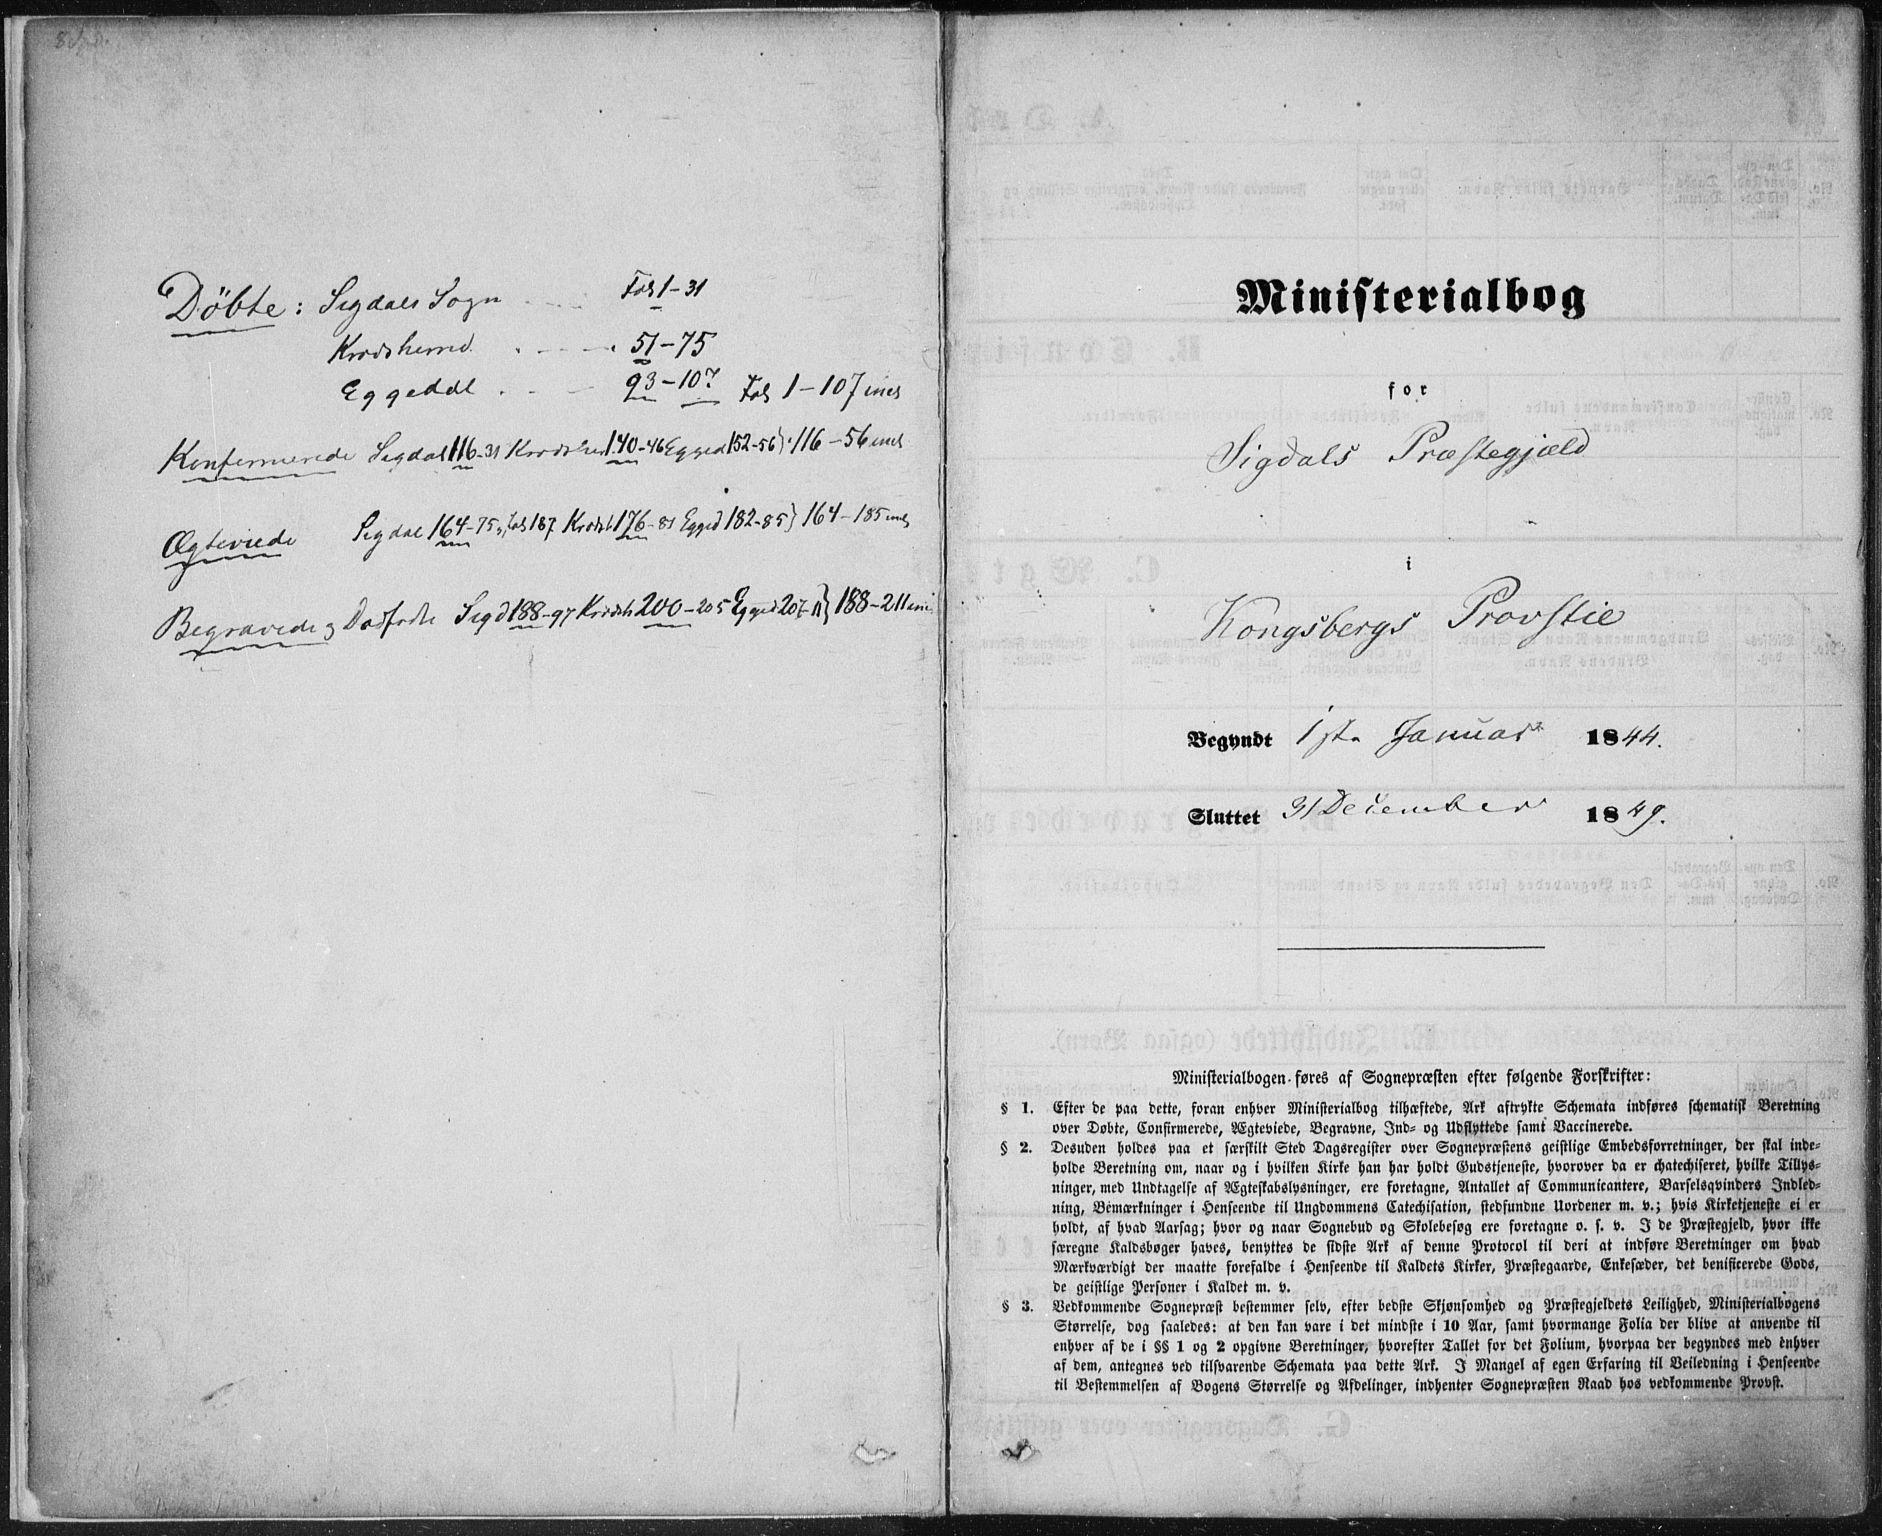 Döbte: Sigdals Sogn Fols 1-31
Krodsherred 51-75
Eggedal 93-107 Fols 1-107 incl
Konfirmerede Sigdal 116-31 Krodsher 140-46 Egged 152-56} 116-56 incl
Ægteviede Sigdal 164-75, fols 187. Krodsh 176-81 Egged 182-85} 164-185 incl
Begravede og Dødfødte Sigd 188-97 Krodsh 200-205 Egged 207-11} 188-211 inc
Ministerialbog
for
Sigdals Præstegjæld
i
Kongsbergs Provstie
Begyndt 1ste Januar 1844.
Sluttet 31 December 1849.
Ministerialbogen føres af Sognepræsten efter følgende Forskrifter:
§ 1. Efter de paa dette, foran enhver Ministerialbog tilhæftede, Ark aftrykte Schemata indføres schematisk Beretning
over Døbte, Confirmerede, Ægteviede, Begravne, Ind- og Udflyttede samt Vaccinerede.
§ 2. Desuden holdes paa et særskilt Sted Dagsregister over Sognepræstens geistlige Embedsforretninger, der skal inde-
holde Beretning om, naar og i hvilken Kirke han har holdt Gudstjeneste, hvorover da er chatechiseret, hvilke Tillys-
ninger, med Undtagelse af Ægteskabslysninger, ere foretagne, Antallet af Communicantere, Barselsqvinders Indled-
ning, Bemærkninger i Henseende til Ungdommens Catechisation, stedfundne Uordener m. v.; hvis Kirketjeneste ei er
holdt, af hvad Aarsag; hvor og naar Sognebud og Skolebesøg ere foretagne o. s. v. I de Præstegjeld, hvor ikke
særegne Kaldsbøger haves, benyttes de sidste Ark af denne Protocol til deri at indføre Beretninger om hvad
Mærkværdigt der maatte forefalde i Henseende til Kaldets Kirker, Præstegaarde, Enkesæder, det benificerede Gods,
de geistlige Personer i Kaldet m. v.
§ 3. Vedkommende Sognepræst bestemmer selv, efter bedste Skjønsomhed og Præstegjeldets Leilighed, Ministerialbogens
Størrelse, dog saaledes: at den kan vare i det mindste i 10 Aar, samt hvormange Folia der blive at anvende til
enhver af de i §§ 1 og 2 opgivne Beretninger, hvorefter Tallet for det Folium, hvorpaa der begyndes med enhver
af dem, antegnes ved tilsvarende Schemata paa dette Ark. I Mangel af egen Erfaring til Veiledning i Henseende
til Bestemmelsen af Bogens Størrelse og Afdelinger, indhenter Sognepræsten Raad hos vedkommende Provst.